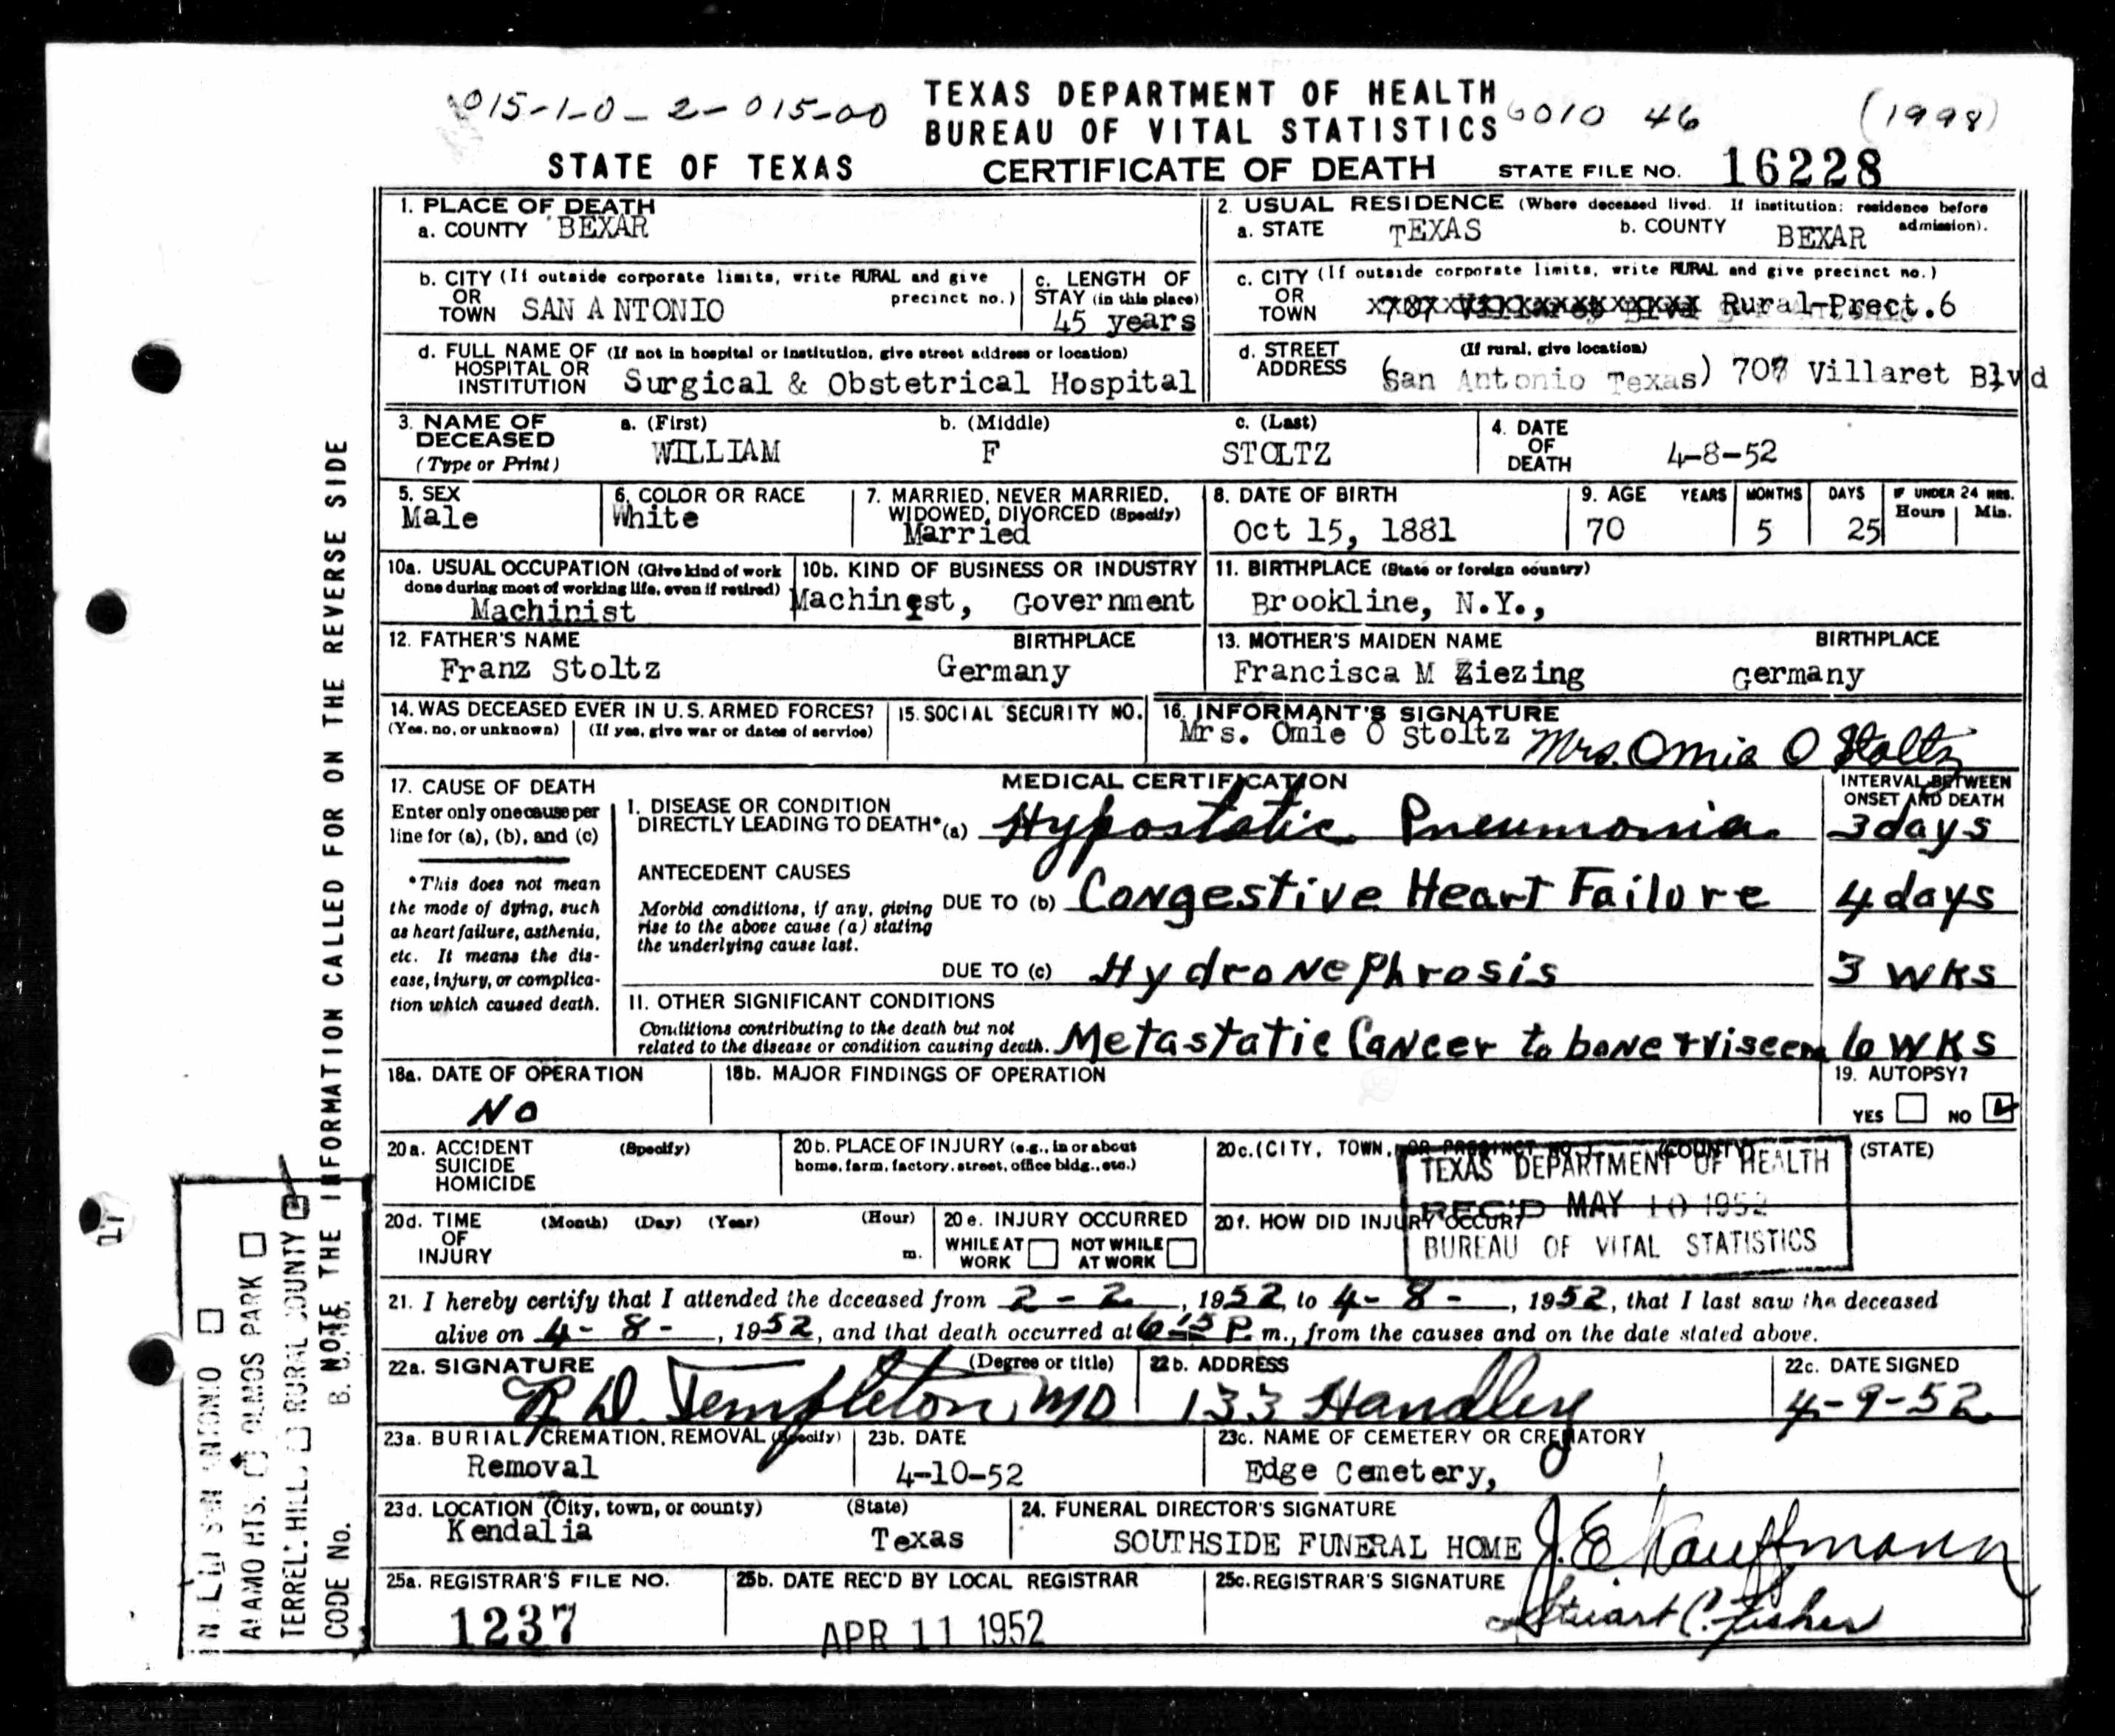 015-1-0-2-015-00
TEXAS DEPARTMENT OF HEALTH
BUREAU OF VITAL STATISTICS
6010 46
(1998)
STATE OF TEXAS
CERTIFICATE OF DEATH
STATE FILE NO. 16228
1. PLACE OF DEATH
a. COUNTY BEXAR
2. USUAL RESIDENCE (Where deceased lived. If institution: residence before admission).
a. STATE TEXAS b. COUNTY BEXAR
b. CITY (If outside corporate limits, write RURAL and give precinct no.)
OR TOWN SAN ANTONIO
c. LENGTH OF STAY (in this place)
45 years
c. CITY (If outside corporate limits, write RURAL and give precinct no.)
OR TOWN Rural-Prect.6
d. FULL NAME OF HOSPITAL OR INSTITUTION (If not in hospital or institution, give street address or location)
Surgical & Obstetrical Hospital
d. STREET ADDRESS (If rural, give location)
(San Antonio Texas) 707 Villaret Blvd
3. NAME OF DECEASED (Type or Print)
a. (First) b. (Middle) c. (Last)
WILLIAM F STOLTZ
4. DATE OF DEATH 4-8-52
5. SEX
Male
6. COLOR OR RACE
White
7. MARRIED, NEVER MARRIED, WIDOWED, DIVORCED (Specify)
Married
8. DATE OF BIRTH
Oct 15, 1881
9. AGE YEARS MONTHS DAYS IF UNDER 24 HRS. Hours Min.
70 5 25
10a. USUAL OCCUPATION (Give kind of work done during most of working life, even if retired)
Machinist
10b. KIND OF BUSINESS OR INDUSTRY
Machinest, Government
11. BIRTHPLACE (State or foreign country)
Brookline, N.Y.,
12. FATHER'S NAME BIRTHPLACE
Franz Stoltz Germany
13. MOTHER'S MAIDEN NAME BIRTHPLACE
Francisca M Ziezing Germany
14. WAS DECEASED EVER IN U.S. ARMED FORCES?
(Yes, no, or unknown) (If yes, give war or dates of service)
15. SOCIAL SECURITY NO.
16. INFORMANT'S SIGNATURE
Mrs. Omie O Stoltz Mrs. Omie O Stoltz
17. CAUSE OF DEATH
Enter only one cause per line for (a), (b), and (c)
*This does not mean the mode of dying, such as heart failure, asthenia, etc. It means the disease, injury, or complication which caused death.
MEDICAL CERTIFICATION
INTERVAL BETWEEN ONSET AND DEATH
I. DISEASE OR CONDITION DIRECTLY LEADING TO DEATH* (a) Hypostatic Pneumonia 3 days
ANTECEDENT CAUSES
Morbid conditions, if any, giving rise to the above cause (a) stating the underlying cause last.
DUE TO (b) Congestive Heart Failure 4 days
DUE TO (c) Hydronephrosis 3 wks
II. OTHER SIGNIFICANT CONDITIONS
Conditions contributing to the death but not related to the disease or condition causing death. Metastatic Cancer to bone + viscera 6 wks
18a. DATE OF OPERATION
No
18b. MAJOR FINDINGS OF OPERATION
19. AUTOPSY?
YES NO
20a. ACCIDENT SUICIDE HOMICIDE (Specify)
20b. PLACE OF INJURY (e.g., in or about home, farm, factory, street, office bldg., etc.)
20c. (CITY, TOWN, OR PRECINCT NO.) (COUNTY) (STATE)
TEXAS DEPARTMENT OF HEALTH
REC'D MAY 10 1952
BUREAU OF VITAL STATISTICS
20d. TIME OF INJURY (Month) (Day) (Year) (Hour) m.
20e. INJURY OCCURRED
WHILE AT WORK NOT WHILE AT WORK
20f. HOW DID INJURY OCCUR?
21. I hereby certify that I attended the deceased from 2-2, 1952, to 4-8-, 1952, that I last saw the deceased
alive on 4-8-, 1952, and that death occurred at 6:15 P.m., from the causes and on the date stated above.
22a. SIGNATURE (Degree or title)
R D. Templeton, MD
22b. ADDRESS
133 Handley
22c. DATE SIGNED
4-9-52
23a. BURIAL, CREMATION, REMOVAL (Specify)
Removal
23b. DATE
4-10-52
23c. NAME OF CEMETERY OR CREMATORY
Edge Cemetery,
23d. LOCATION (City, town, or county) (State)
Kendalia Texas
24. FUNERAL DIRECTOR'S SIGNATURE
SOUTHSIDE FUNERAL HOME J. E. Kauffmann
25a. REGISTRAR'S FILE NO.
1237
25b. DATE REC'D BY LOCAL REGISTRAR
APR 11 1952
25c. REGISTRAR'S SIGNATURE
Stuart C. Fisher
NOTE THE INFORMATION CALLED FOR ON THE REVERSE SIDE
SAN ANTONIO
ALAMO HTS. OLMOS PARK
TERRELL HILLS RURAL COUNTY
CODE No.
17